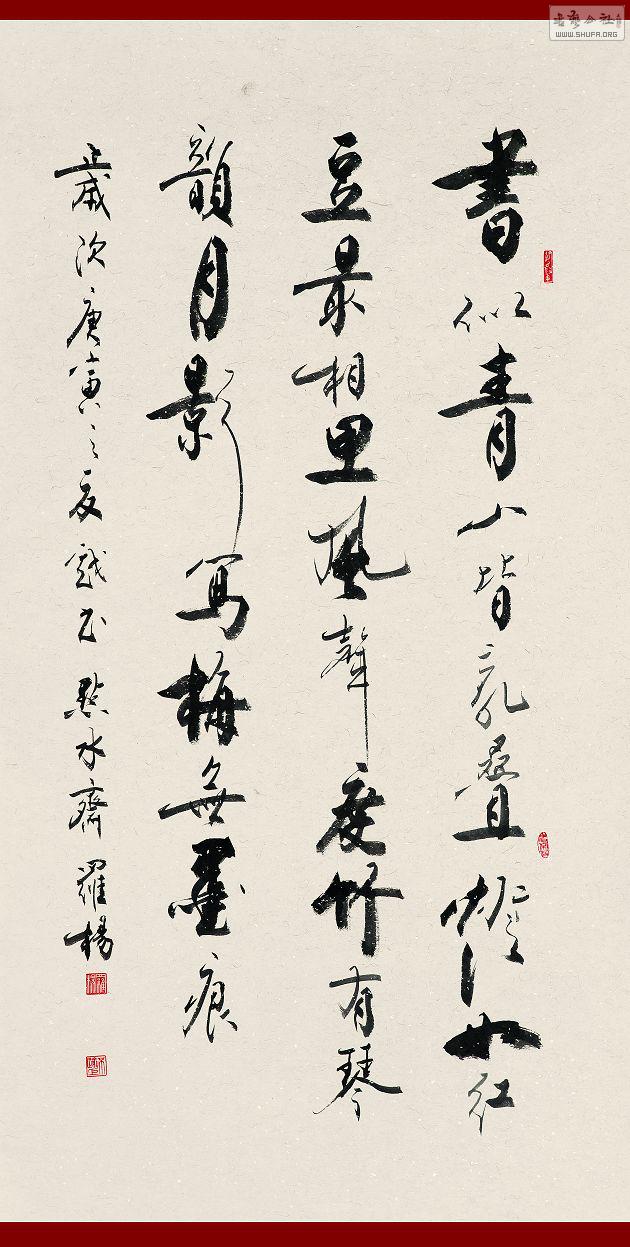 書藝公社
WWW.SHUFA.ORG
書似青山皆亂疊燈如紅
豆最相思風聲度竹有琴
韻月影寫梅無墨痕
歲次庚寅之夏 點水齋 羅楊